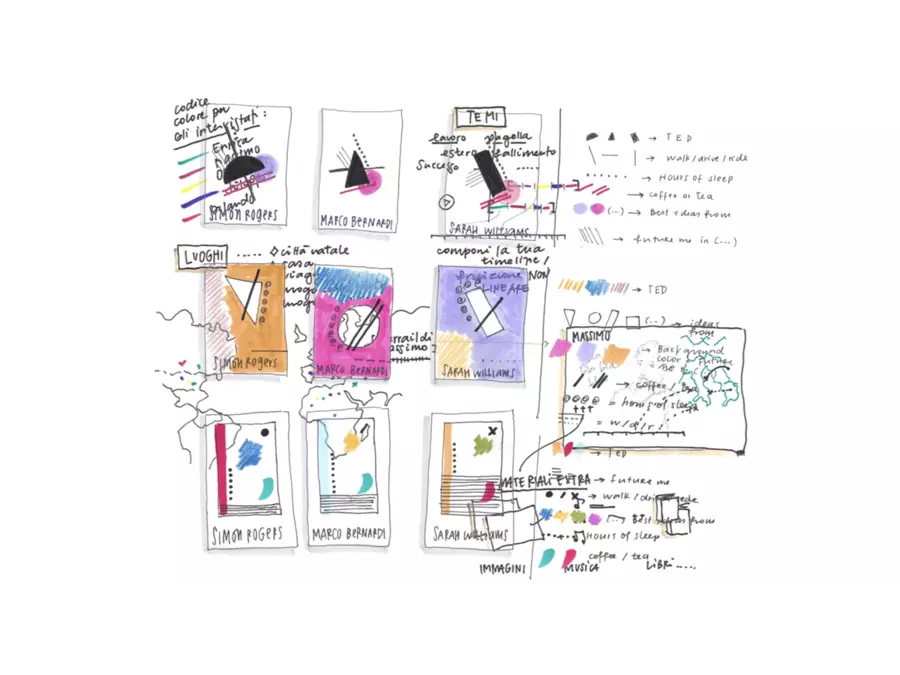 codice
colore per
gli intervistati:
Enrica
Massimo
Orlando
SIMON ROGERS
MARCO BERNARDI
TEMI
lavoro pagella
estero fallimento
successo
SARAH WILLIAMS
→ TED
→ walk/drive/ride
→ Hours of sleep
→ coffee or tea
(...) → Best ideas from
→ future me in (...)
LUOGHI
città natale
casa
SIMON ROGERS
MARCO BERNARDI
componi la tua
timeline/
fruizione NON
LINEARE
SARAH WILLIAMS
→ TED
(...) → ideas
from
MASSIMO
→ Background
color = future
me
→ coffee / tea
= hours of sleep
= w/d/r
→ TED
SIMON ROGERS
MARCO BERNARDI
SARAH WILLIAMS
MATERIALI EXTRA → future me
→ walk / drive / ride
(... → Best ideas from
Hours of sleep
coffee / tea
IMMAGINI
MUSICA
LIBRI ....